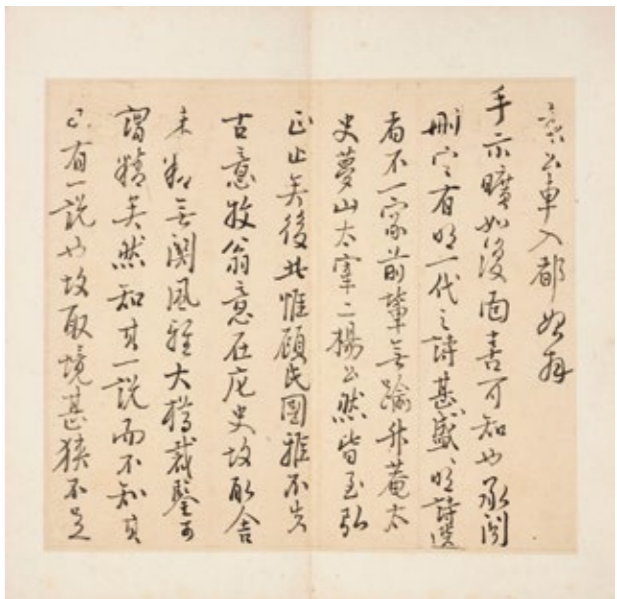 公車入都始拜
手示曠如復面喜可知也承閱
刪定有明一代之詩甚盛甚盛明詩選
者不一家前輩無踰升菴太
史夢山太宰二楊公然皆至弘
正止矣後此惟顧氏國雅不失
古意牧翁意在庀史故取舍
未無關風雅大樽裁鑒可
謂精矣然知其一說而不知其
有一說也故取境甚狹不足